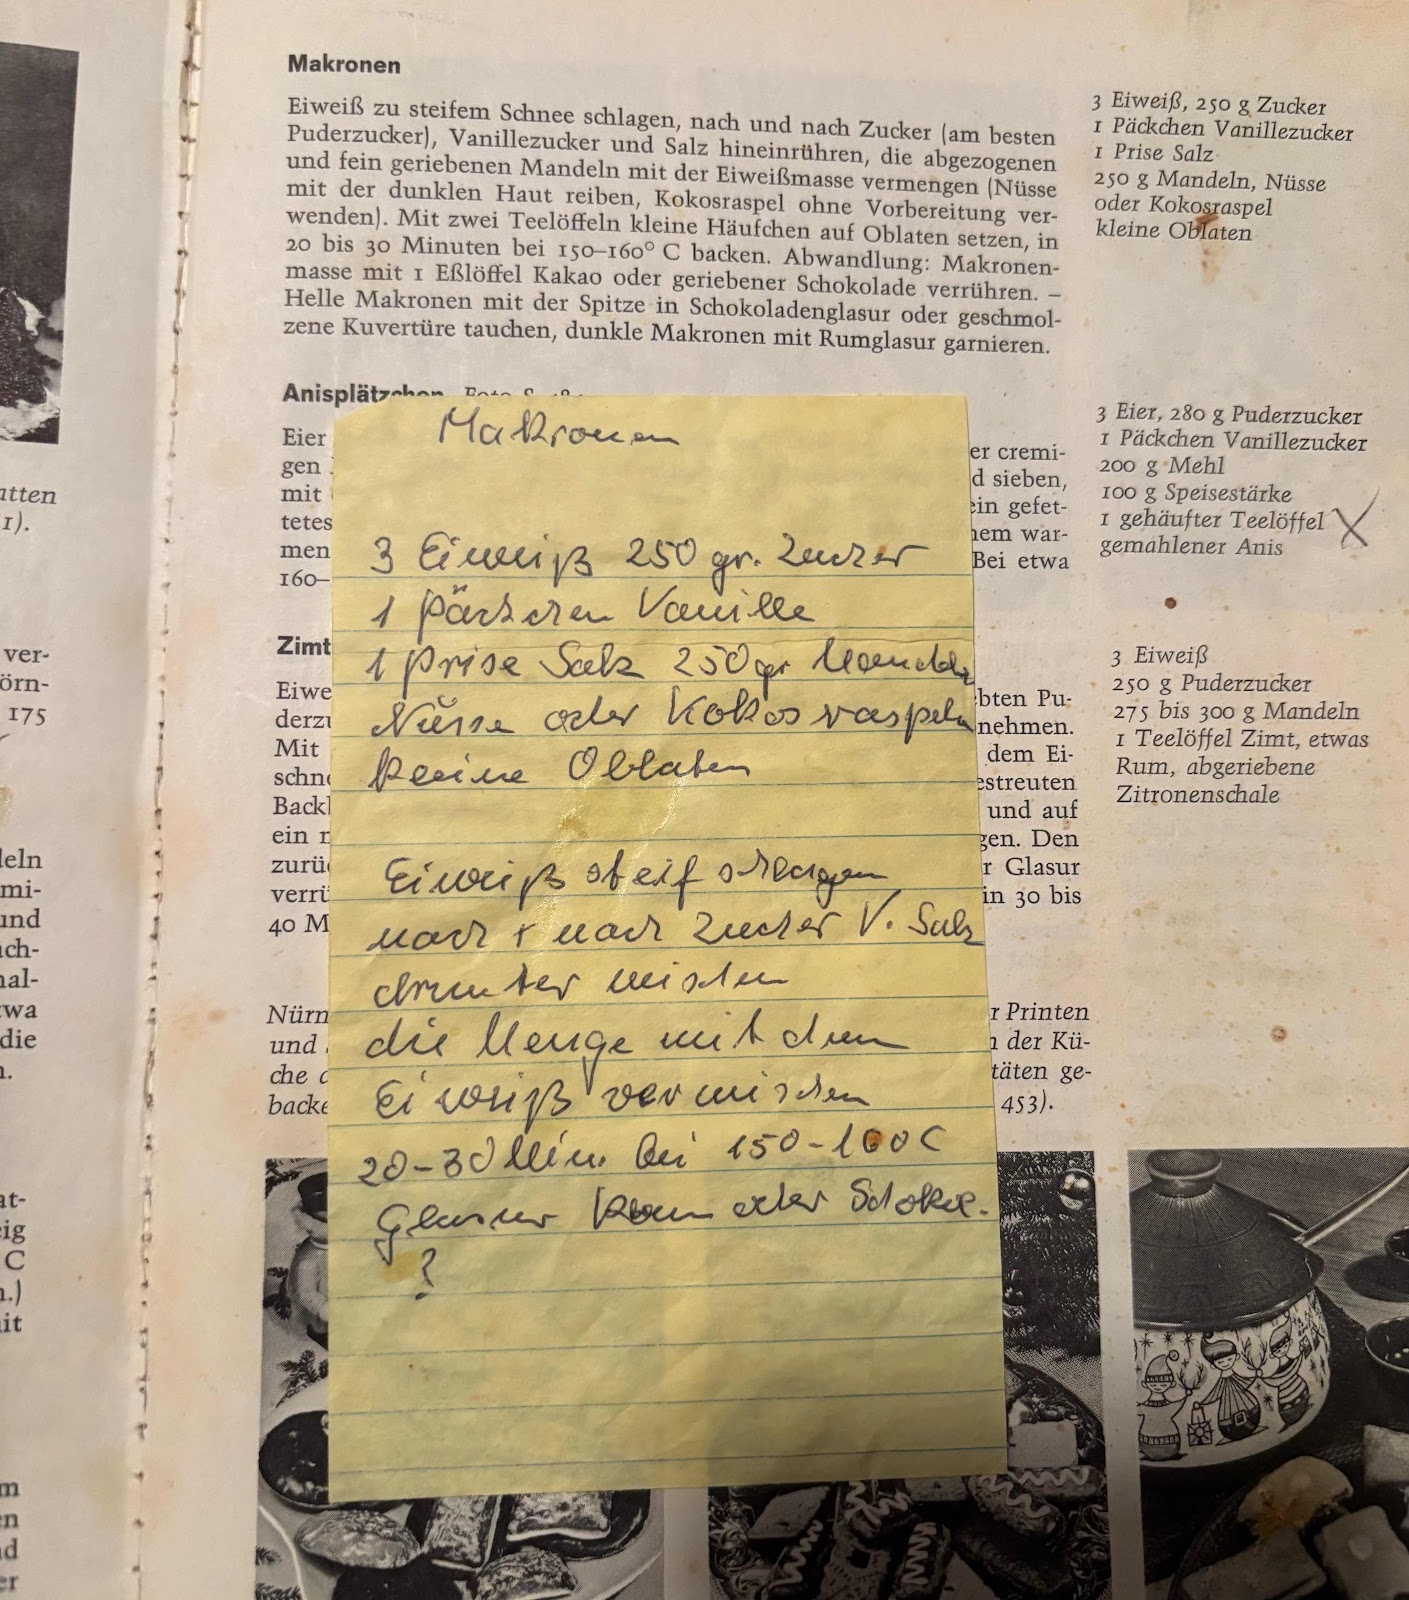 atten
1).
ver-
örn-
175
deln
mi-
und
ach-
nal-
twa
die
n.
at-
eig
C
n.)
nit
m
en
nd
er
Makronen
Eiweiß zu steifem Schnee schlagen, nach und nach Zucker (am besten
Puderzucker), Vanillezucker und Salz hineinrühren, die abgezogenen
und fein geriebenen Mandeln mit der Eiweißmasse vermengen (Nüsse
mit der dunklen Haut reiben, Kokosraspel ohne Vorbereitung ver-
wenden). Mit zwei Teelöffeln kleine Häufchen auf Oblaten setzen, in
20 bis 30 Minuten bei 150–160° C backen. Abwandlung: Makronen-
masse mit 1 Eßlöffel Kakao oder geriebener Schokolade verrühren. –
Helle Makronen mit der Spitze in Schokoladenglasur oder geschmol-
zene Kuvertüre tauchen, dunkle Makronen mit Rumglasur garnieren.
3 Eiweiß, 250 g Zucker
1 Päckchen Vanillezucker
1 Prise Salz
250 g Mandeln, Nüsse
oder Kokosraspel
kleine Oblaten
Anisplätzchen Foto S.
Eier
gen
mit
tetes
men
160–
er cremi-
d sieben,
ein gefet-
nem war-
Bei etwa
3 Eier, 280 g Puderzucker
1 Päckchen Vanillezucker
200 g Mehl
100 g Speisestärke
1 gehäufter Teelöffel X
gemahlener Anis
Zimt
Eiwe
derzu
Mit
schne
Backl
ein
zurü
verrü
40 M
ebten Pu-
nehmen.
dem Ei-
estreuten
und auf
gen. Den
r Glasur
in 30 bis
3 Eiweiß
250 g Puderzucker
275 bis 300 g Mandeln
1 Teelöffel Zimt, etwas
Rum, abgeriebene
Zitronenschale
Nürn
und
che
backe
r Printen
n der Kü-
täten ge-
453).
Makronen
3 Eiweiß 250 gr. Zucker
1 Päckchen Vanille
1 Prise Salz 250 gr Mandeln
Nüsse oder Kokosraspeln
kleine Oblaten
Eiweiß steif schlagen
nach + nach Zucker V. Salz
drunter mischen
die Menge mit dem
Eiweiß vermischen
20-30 Min. bei 150-160 C
Glasur Rum oder Schoko.
?